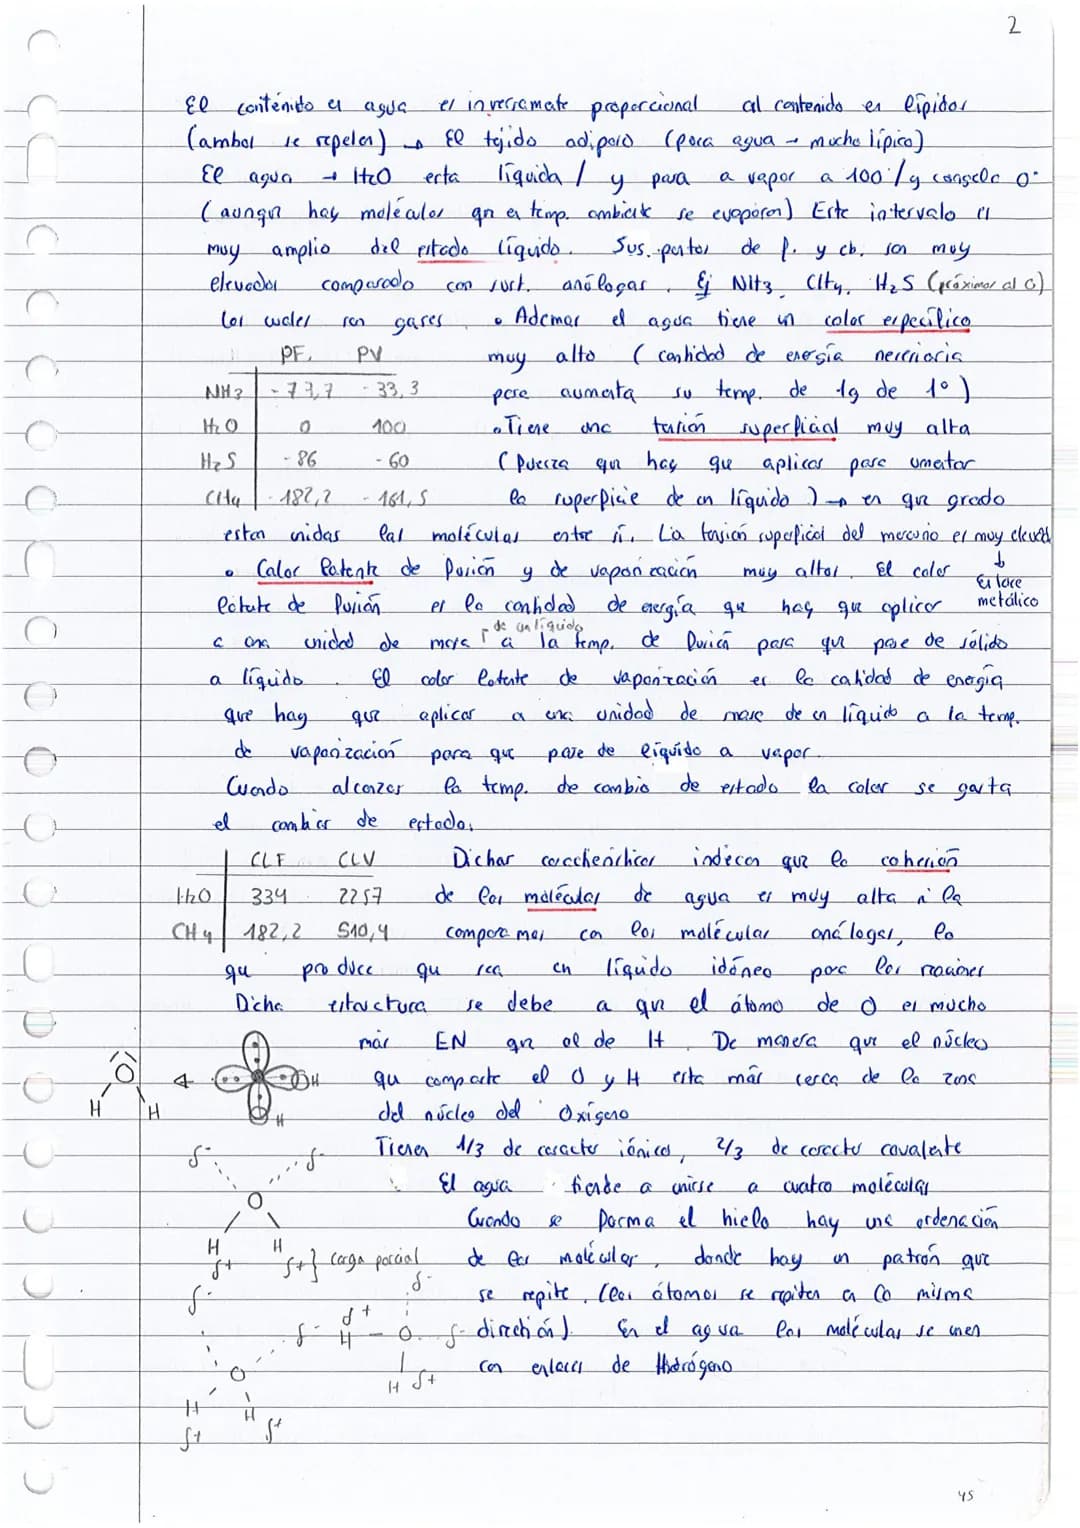 2
El contenido en agua es inversamente proporcional al contenido en lípidos
(ambos se repelen) → El tejido adiposo (poca agua → mucho lípico)
El agua → H2O esta líquida / y pasa a vapor a 100°/y congela 0°
(aunque hay moléculas que en temp. ambiente se evaporan) Este intervalo es
muy amplio del estado líquido. Sus. puntos de f. y eb. son muy
elevados comparado con sust. análogas. Ej NH3, CH4, H2S (próximos al O)
Los cuales son gases. • Ademas el agua tiene un calor específico
muy alto (cantidad de energía necesaria
para aumenta su temp. de 1g de 1°)
PF. PV
NH3 -77,7 -33,3
H2O 0 100
H2S -86 -60
CH4 -182,2 -161,5
• Tiene una tensión superficial muy alta
(fuerza que hay que aplicar para umentar
la superficie de un líquido) → en que grado
estan unidas las moléculas entre sí. La tensión superficial del mercurio es muy elevada
↓
Enlace
metálico
• Calor latente de fusión y de vaporización muy altos. El calor
latente de fusión es la cantidad de energía que hay que aplicar
de un líquido
a una unidad de masa a la temp. de fusión para que pase de sólido
a líquido. El calor latente de vaporización es la catidad de energía
que hay que aplicar a una unidad de masa de un líquido a la temp.
de vaporización para que pase de líquido a vapor.
Cuando alcanzas la temp. de cambio de estado la calor se gasta
el cambiar de estado.
CLF CLV
H2O 334 2257
CH4 182,2 510,4
Dichas características indican que la cohesión
de las moléculas de agua es muy alta si la
comparamos con las moléculas análogas, lo
que produce que sea un líquido idóneo para las reaciones
Dicha estructura se debe a que el átomo de O es mucho
más EN que el de H. De manera que el núcleo
que comparte el O y H esta más cerca de la zona
del núcleo del Oxígeno
O H
H
O
H H
Tienen 1/3 de caracter iónico, 2/3 de caracter covalente
El agua tiende a unirse a cuatro moléculas
Cuando se forma el hielo hay una ordenación
de las moléculas, donde hay un patrón que
se repite. (los átomos se repiten a la misma
dirección). En el agua las moléculas se unen
con enlaces de Hidrógeno
δ- δ-
O
H H
δ+ δ+} carga parcial
δ- δ-
δ- δ+
H - O δ-
H δ+
O
H H
δ+ δ+
45